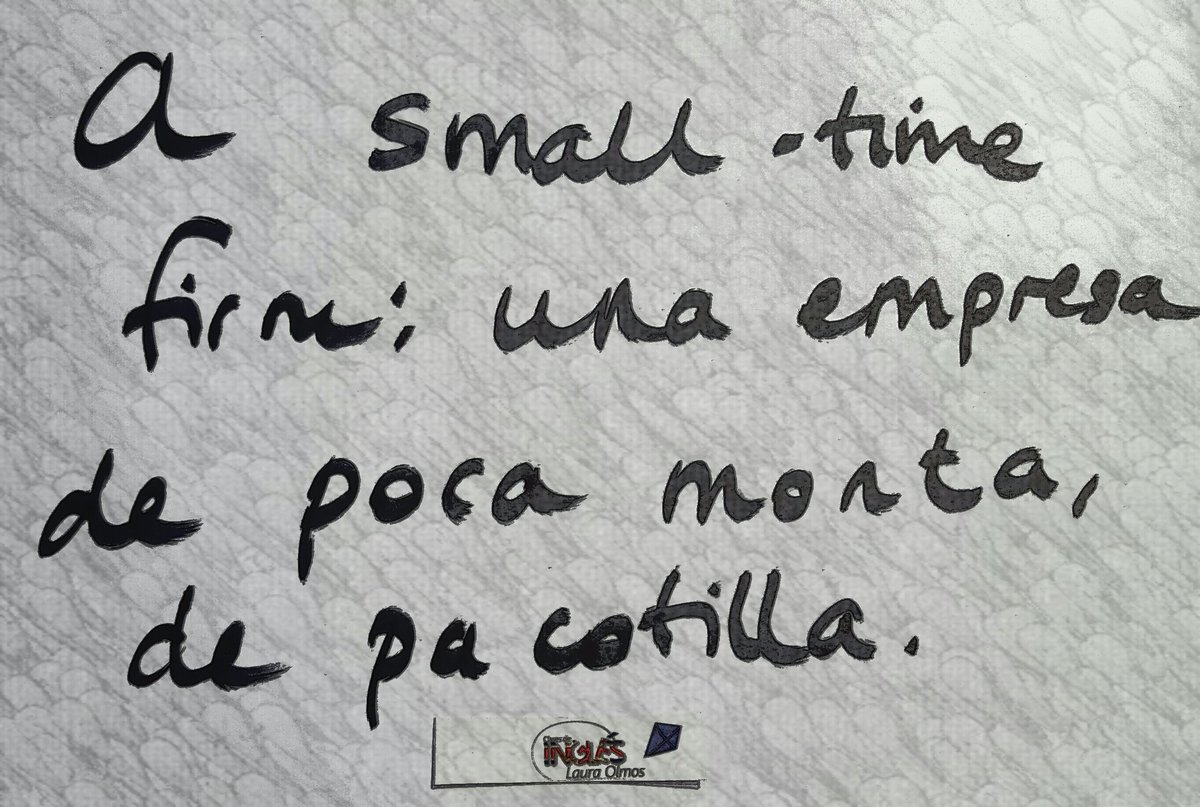 a small-time
firm: una empresa
de poca monta,
de pacotilla.
INGLÉS
Laura Olmos